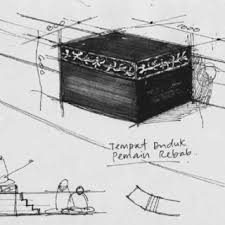 Tempat Duduk
Pemain Rebab.